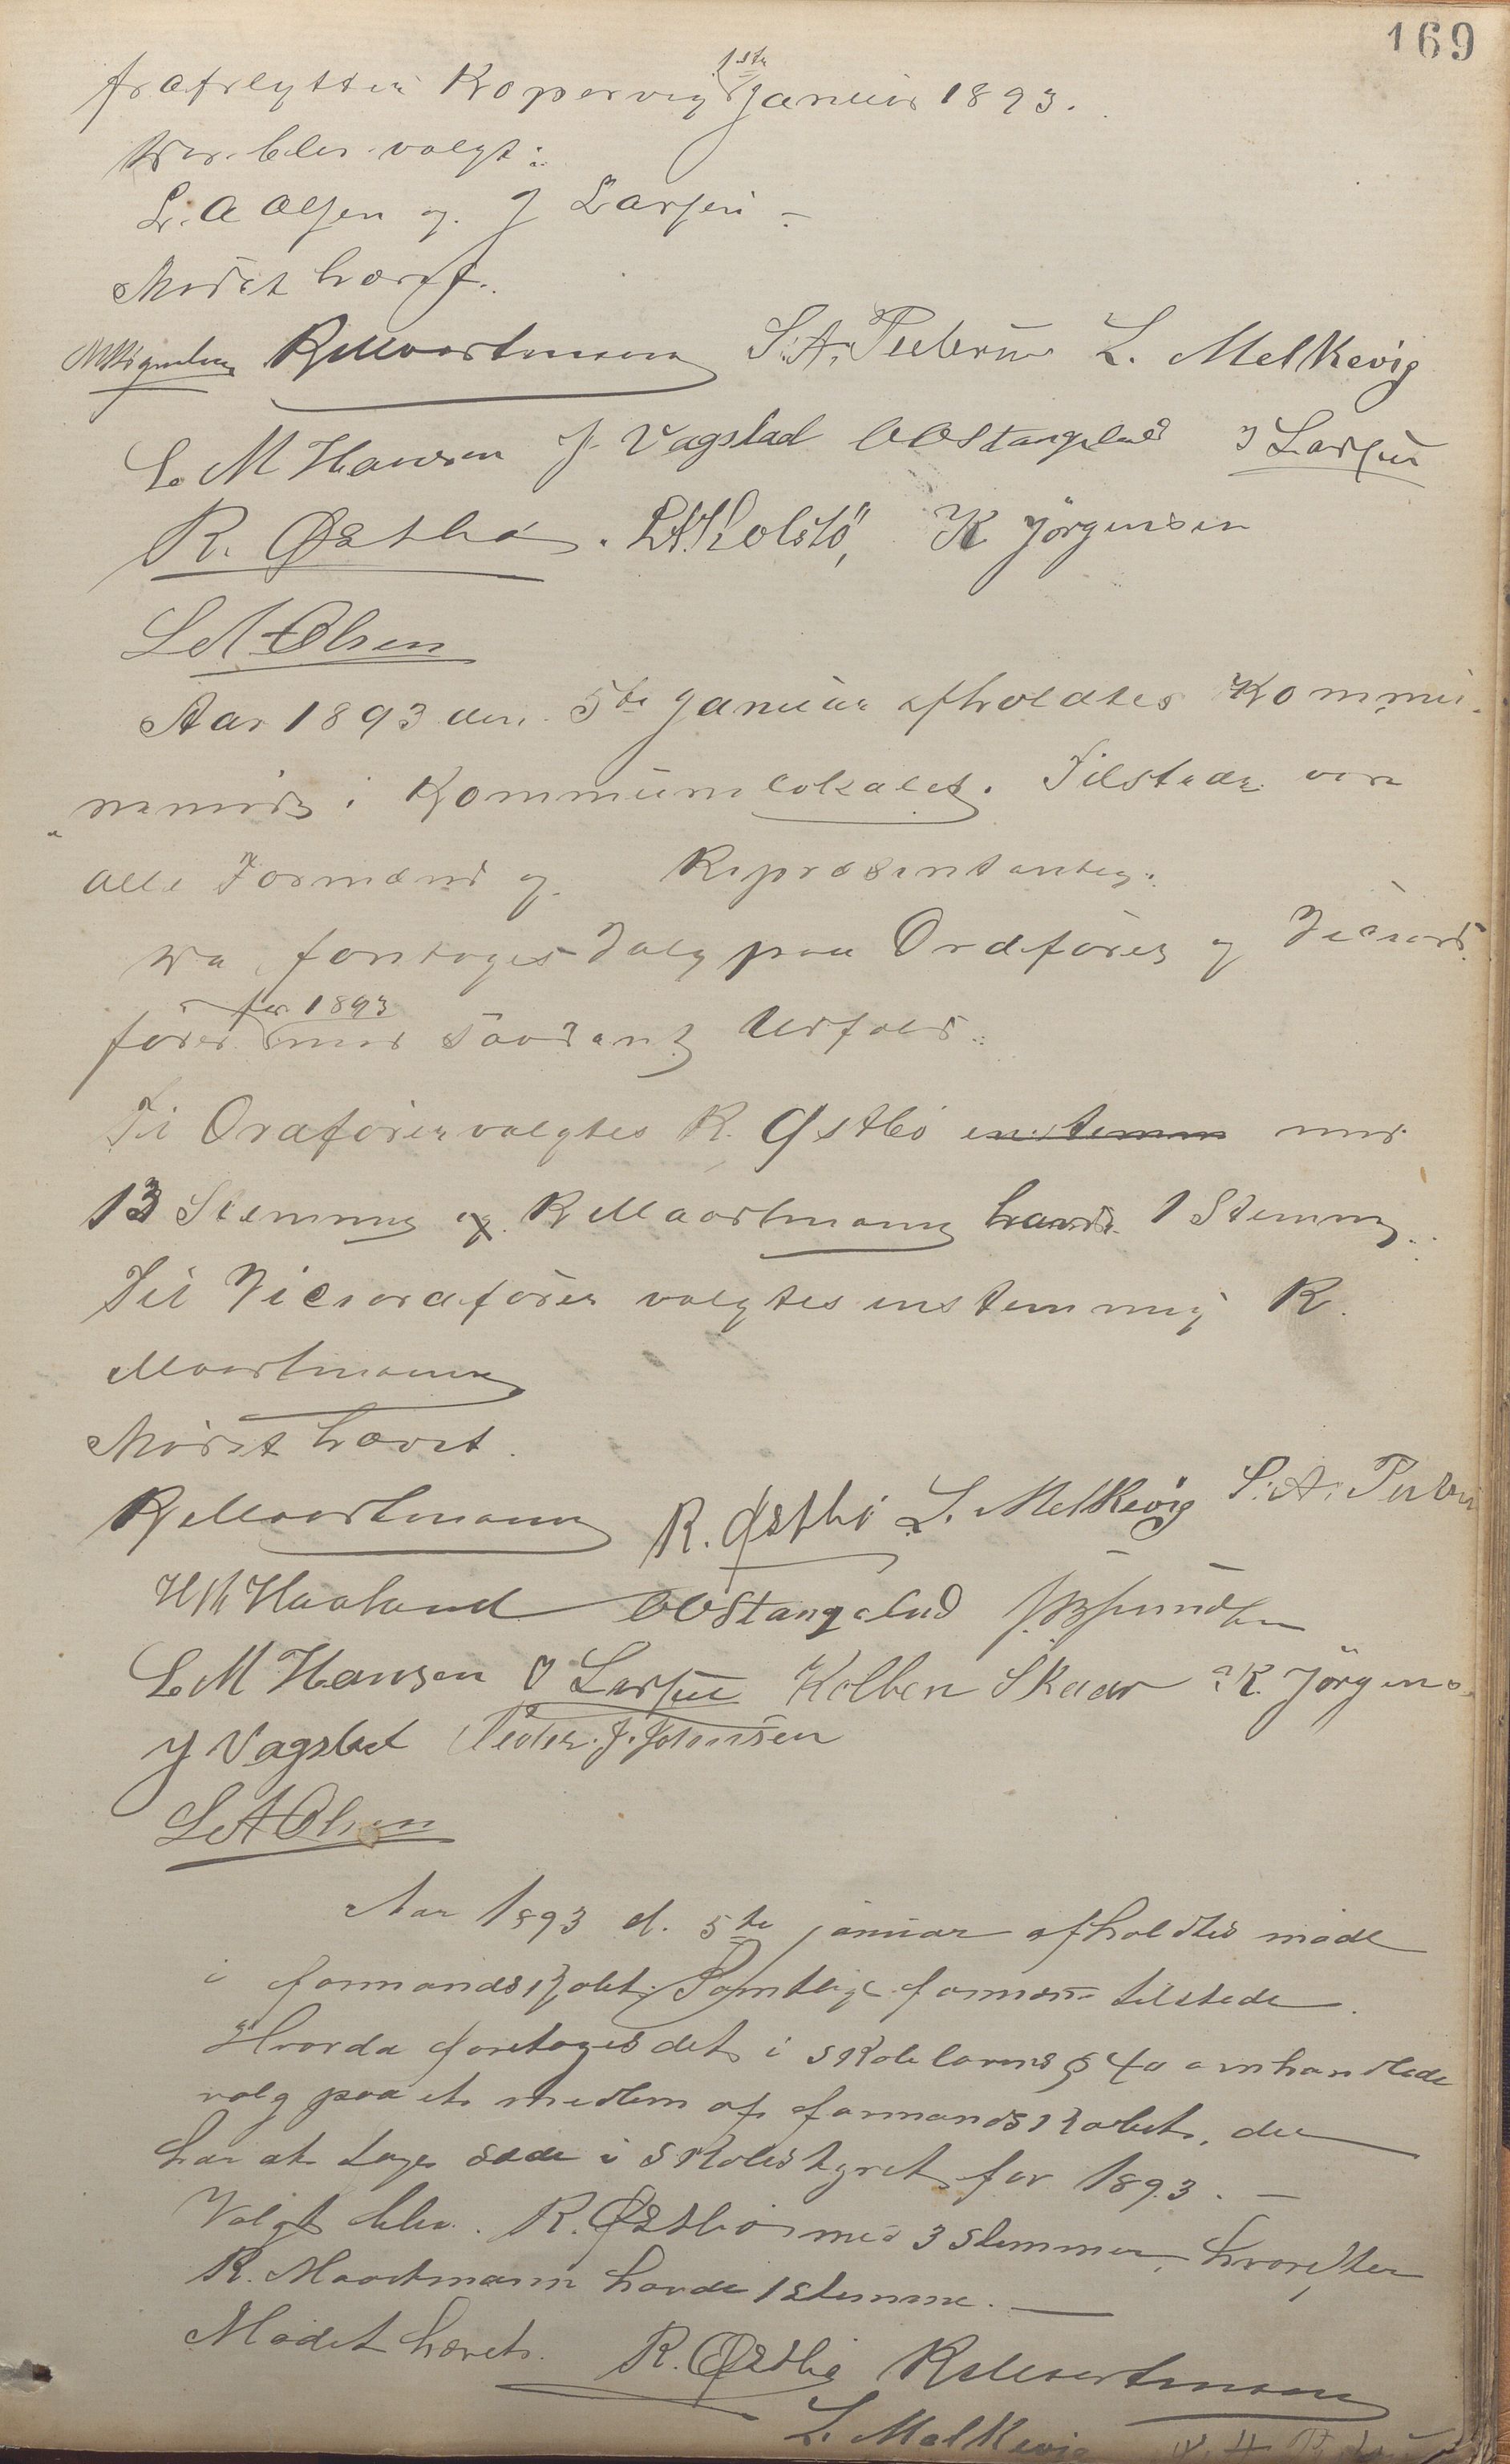 169
fraflytter Kopervig 1ste Januar 1893.
Der blev valgt:
L. A Olsen og J Larsen -
Mødet hævet.
R Maartmann S. A. Petersen L. Melkevig
L. M Hansen J. Vagslad O O Stangeland J Larsen
R. Østbö. L A Kolstö, K Jörgensen
L A Olsen
Aar 1893 den 5te Januar afholdtes Kommu-
nemöde i Kommunelokalet. Tilstede var
alle Formænd og Repræsentanter.
Da foretoges Valg paa Ordförer og Viceord-
förer for 1893 med saadant Udfald:
Til Ordförer valgtes R. Østbö enstemm med
13 Stemmer og R Maartmann havde 1 Stemme.
Til Viceordförer valgtes enstemmig R.
Maartmann
Mödet hævet.
R Maartmann R. Østbö L. Melkevig S. A. Petersen
Haaland O O Stangeland
L. M Hansen J Larsen Kolben Skaar K. Jörgens
J Vagslad Peder. J. Johnsen
L A Olsen
Aar 1893 d. 5te januar afholdtes möde
i formandskabet. Samtlige formænd tilstede.
Hvorda foretoges det i skolelovens § 40 omhandlede
valg paa et medlem af formandskabet, der
har at tage sæde i skolestyret for 1893. —
Valgt blev R. Østbö med 3 stemmer, hvorefter
R. Maartmann havde 1 stemme. —
Mödet hævet. R. Østbö R Maartmann
L. Melkevig